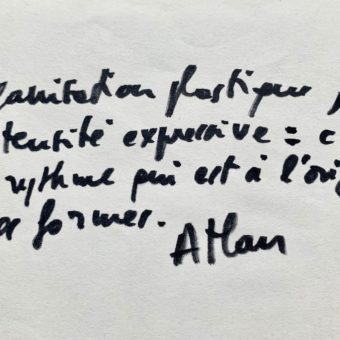 ganisation plastique p
tensité expressive = c
rythme qui est à l'orig
es formes.
Atlan